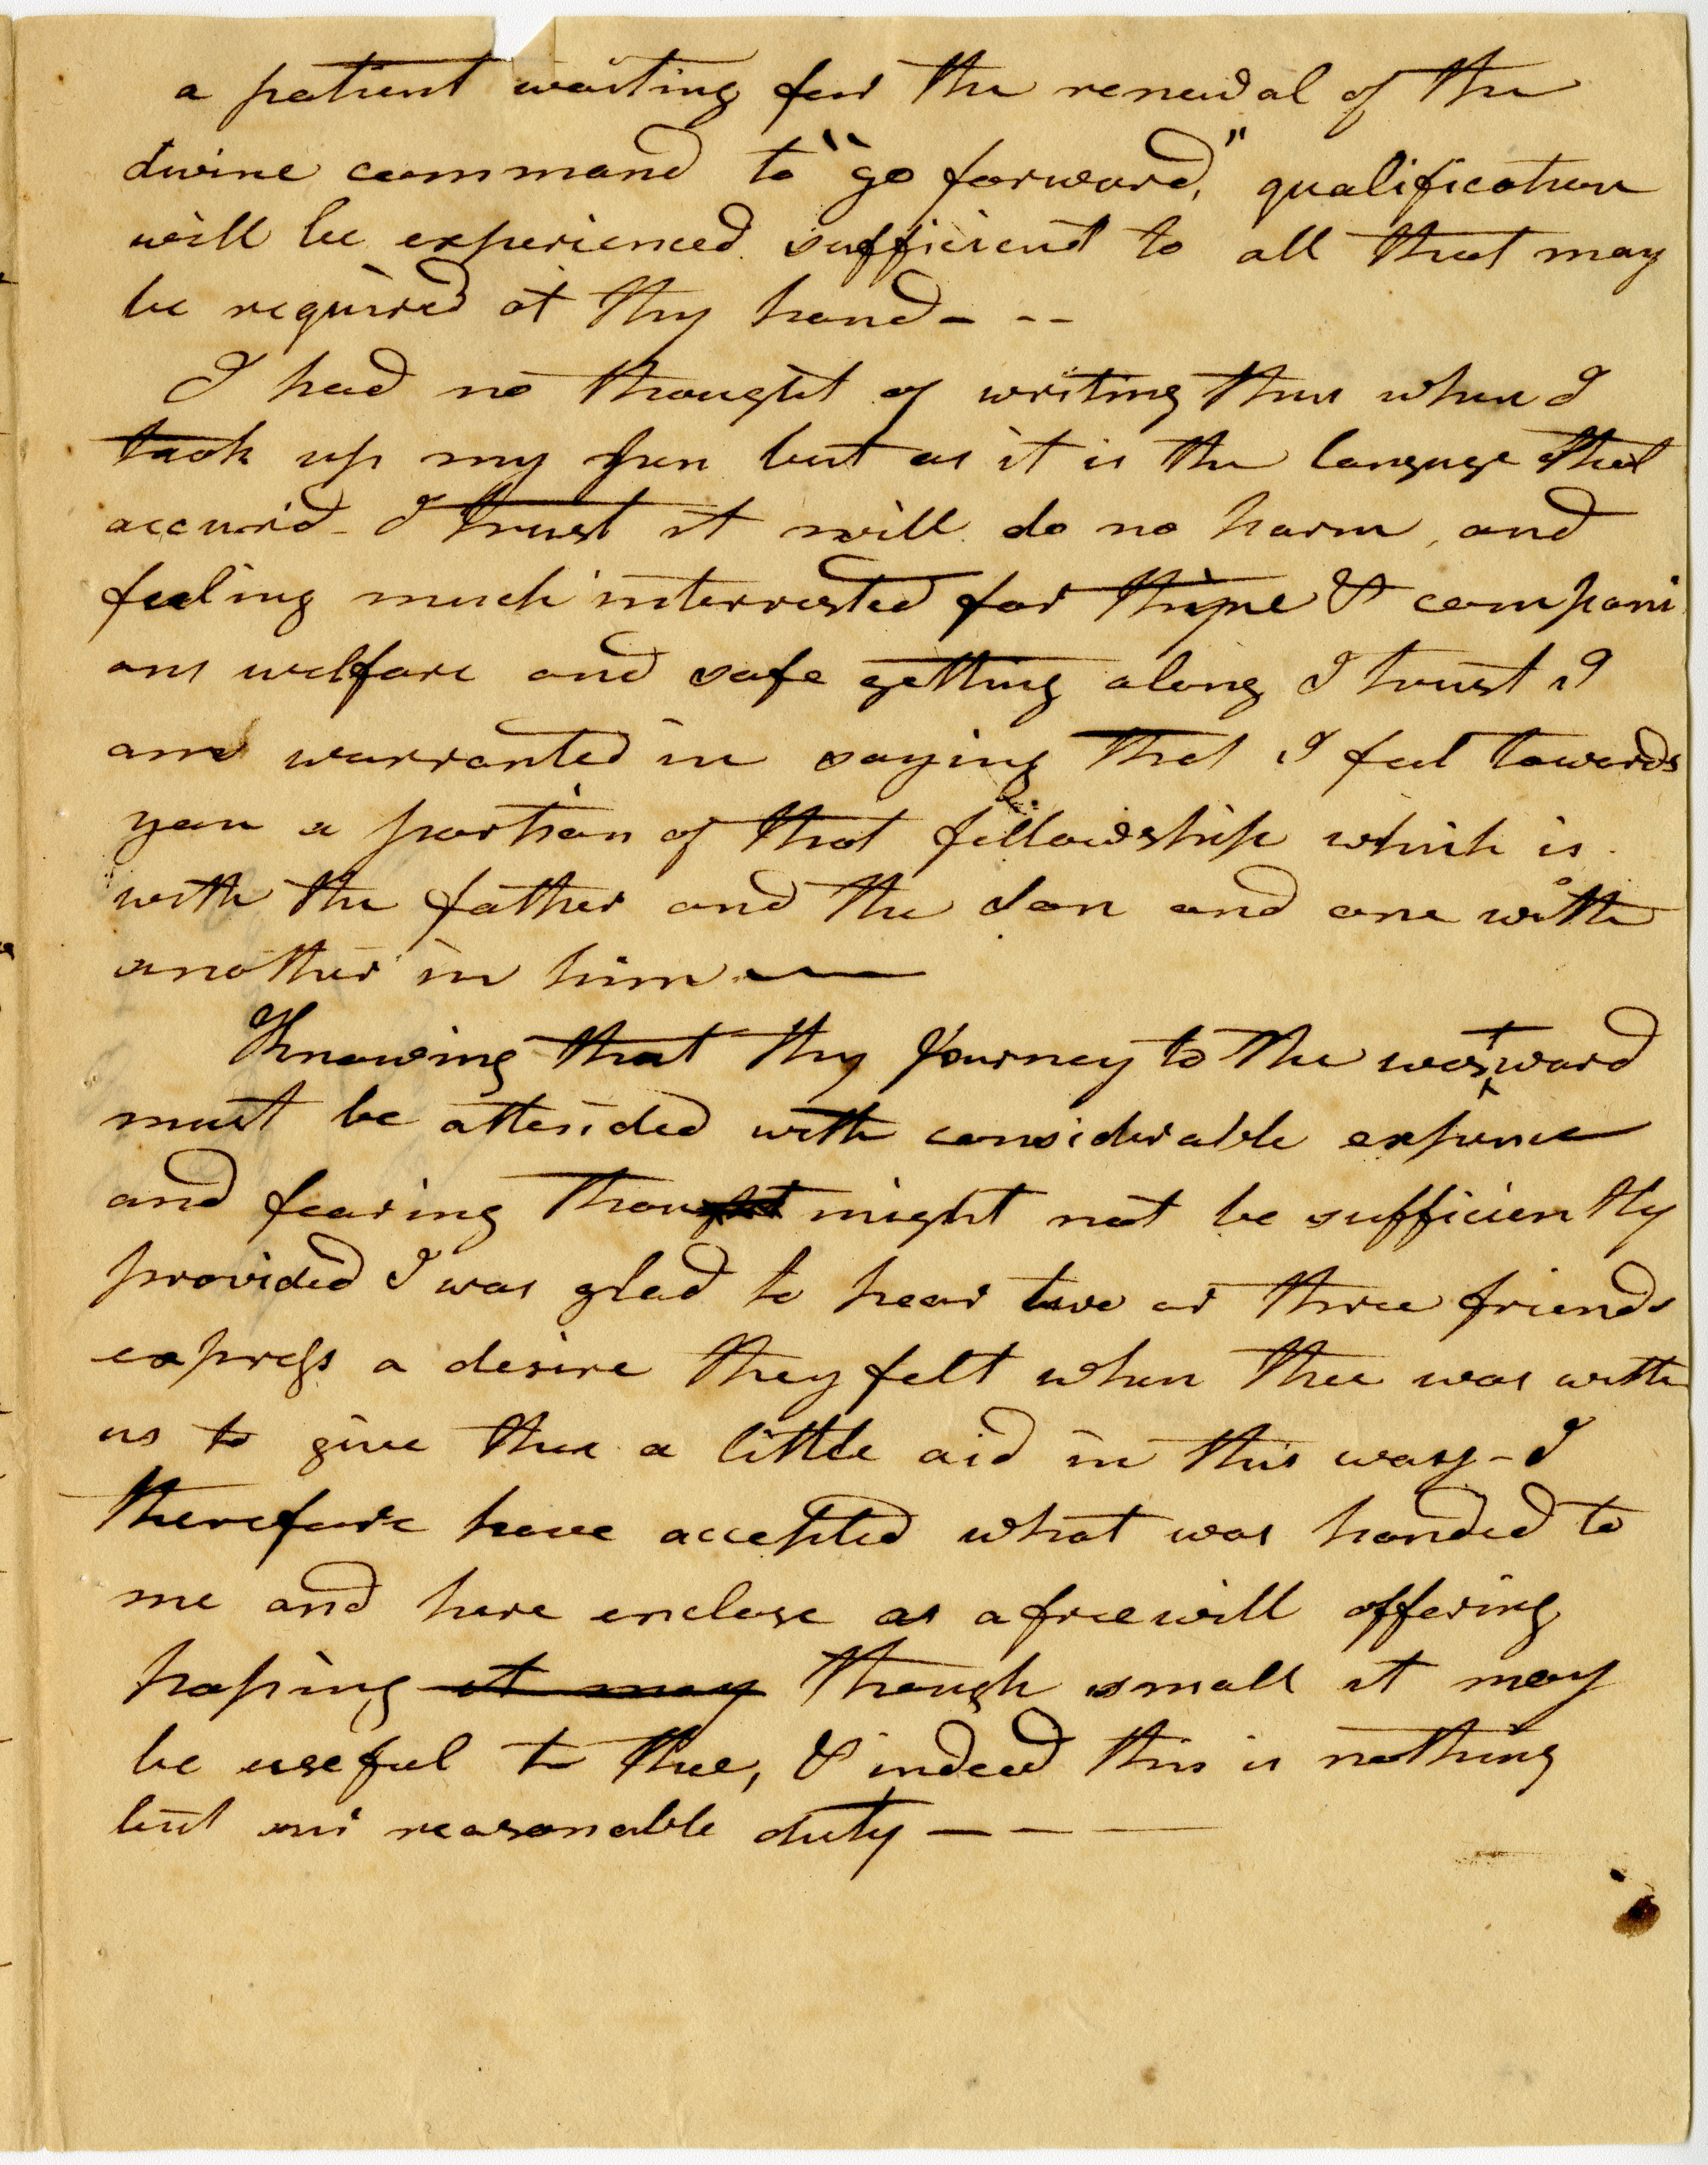 a patient waiting for the renewal of the
divine command to "go forward," qualification
will be experienced sufficient to all that may
be required at thy hand - - -
I had no thought of writing thus when I
took up my pen but as it is the languge that
accurid - I trust it will do no harm, and
feeling much interrested for thine & compani
ons welfare and safe getting along I trust I
am warranted in saying that I feel towards
you a portion of that fellowship which is
with the father and the son and one with
another in him —
Knowing that thy Journey to the westward
must be attended with considerable expence
and fearing thou might not be sufficiently
provided I was glad to hear two or three friends
express a desire they felt when thee was with
us to give thee a little aid in this way - I
therefore have accepted what was handed to
me and here enclose as a freewill offering
hoping it may though small it may
be useful to thee, & indeed this is nothing
but our reasonable duty — — —